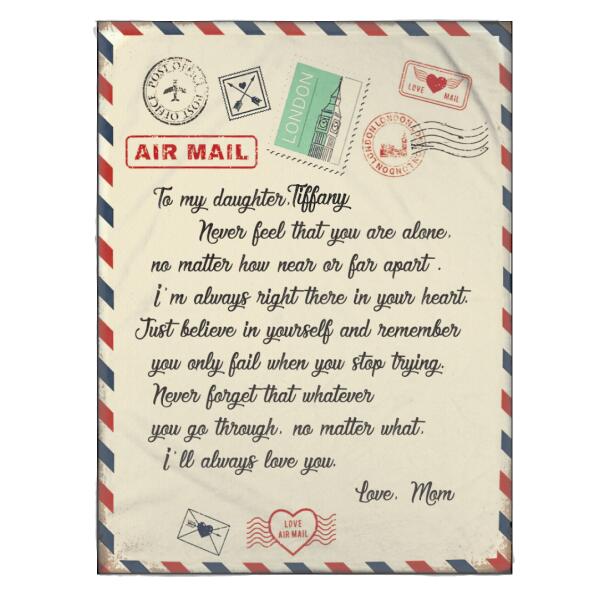 POST OFFICE POST OFFICE
LONDON
LOVE MAIL
LONDON LONDON LONDON LONDON
AIR MAIL
To my daughter, Tiffany
Never feel that you are alone,
no matter how near or far apart .
i'm always right there in your heart.
Just believe in yourself and remember
you only fail when you stop trying.
Never forget that whatever
you go through, no matter what,
i'll always love you.
Love, Mom
LOVE
AIR MAIL